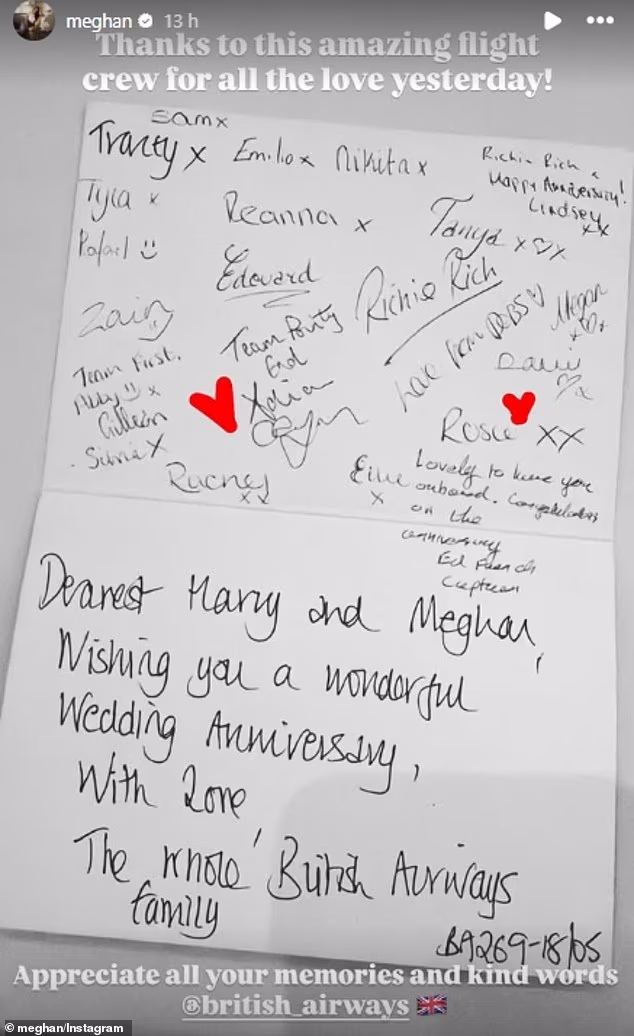 meghan 13 h
Thanks to this amazing flight
crew for all the love yesterday!
Samx
Tracey x Emilio x Nikita x
Richie Rich x
Happy Anniversary!
Lindsey
xx
Tyla x
Deanna x
Tanya x♡x
Rafael
Edouard
Richie Rich
Megan
x♡x
Zain
Team Party
End
Love from DEBS♡
Team First.
Abby x
Gillean
Silvia X
Rosie XX
Rachel
xx
Lovely to have you
onboard. Congratulations
on the
anniversary
Ed French
Captain
Dearest Harry and Meghan,
Wishing you a wonderful
Wedding Anniversary,
With Love
The whole British Airways
family
BA269-18/05
Appreciate all your memories and kind words
@british_airways 🇬🇧
© meghan/Instagram